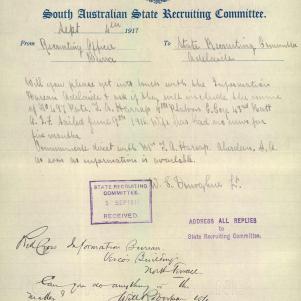 South Australian State Recruiting Committee.
Sept 4th 1917
From Recruiting Officer To State Recruiting Committee
Burra Adelaide
Will you please get into touch with the Information
Bureau Adelaide & ask if they will
of No Pvte. F. A. Harrap Platoon E. Coy 43rd Battn
A.I.F. sailed June 9th 1916 Wife has had no news for
five months.
Communicate direct with Mrs F. A. Harrap. Aberdeen, S.A.
as soon as information is available.
W. S. Donoghue Lt.
STATE RECRUITING
COMMITTEE.
5 SEP 1917
RECEIVED
ADDRESS ALL REPLIES
to
State Recruiting Committee.
Red Cross Information Bureau
Verco's Building
North Terrace
Can you do anything in the
matter?